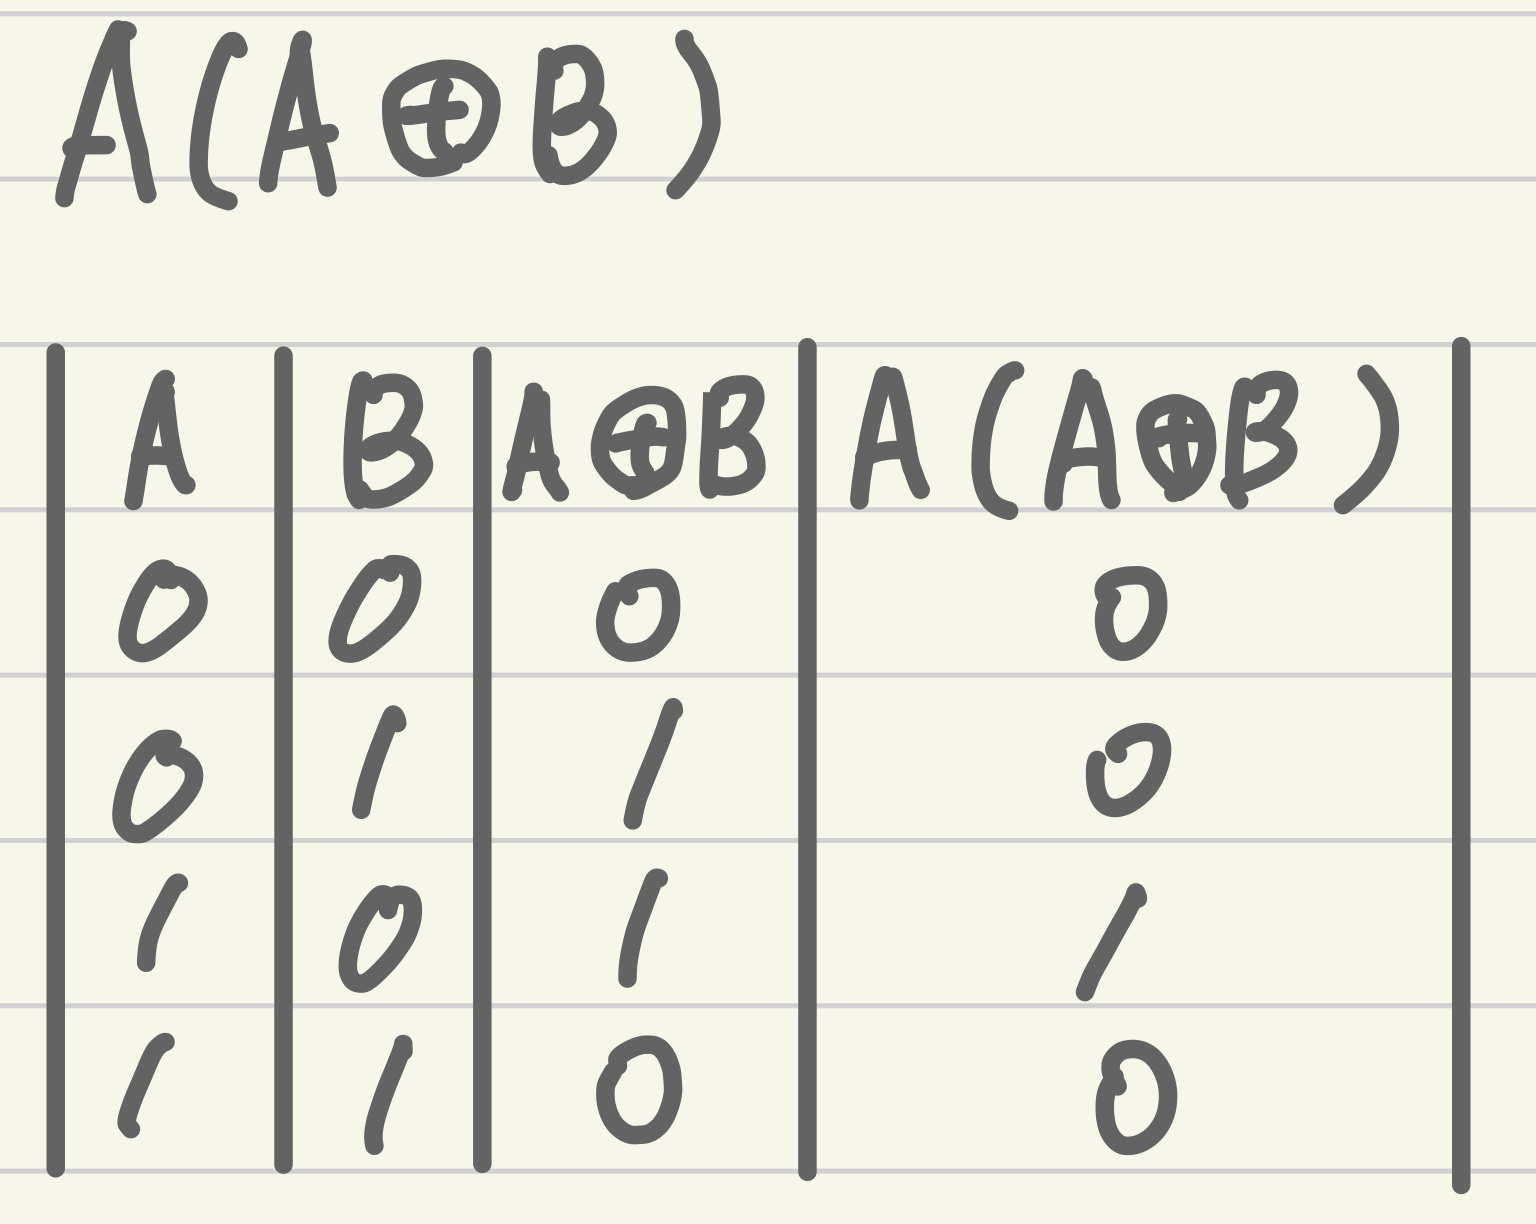 A(A⊕B)
A B A⊕B A(A⊕B)
0 0 0 0
0 1 1 0
1 0 1 1
1 1 0 0